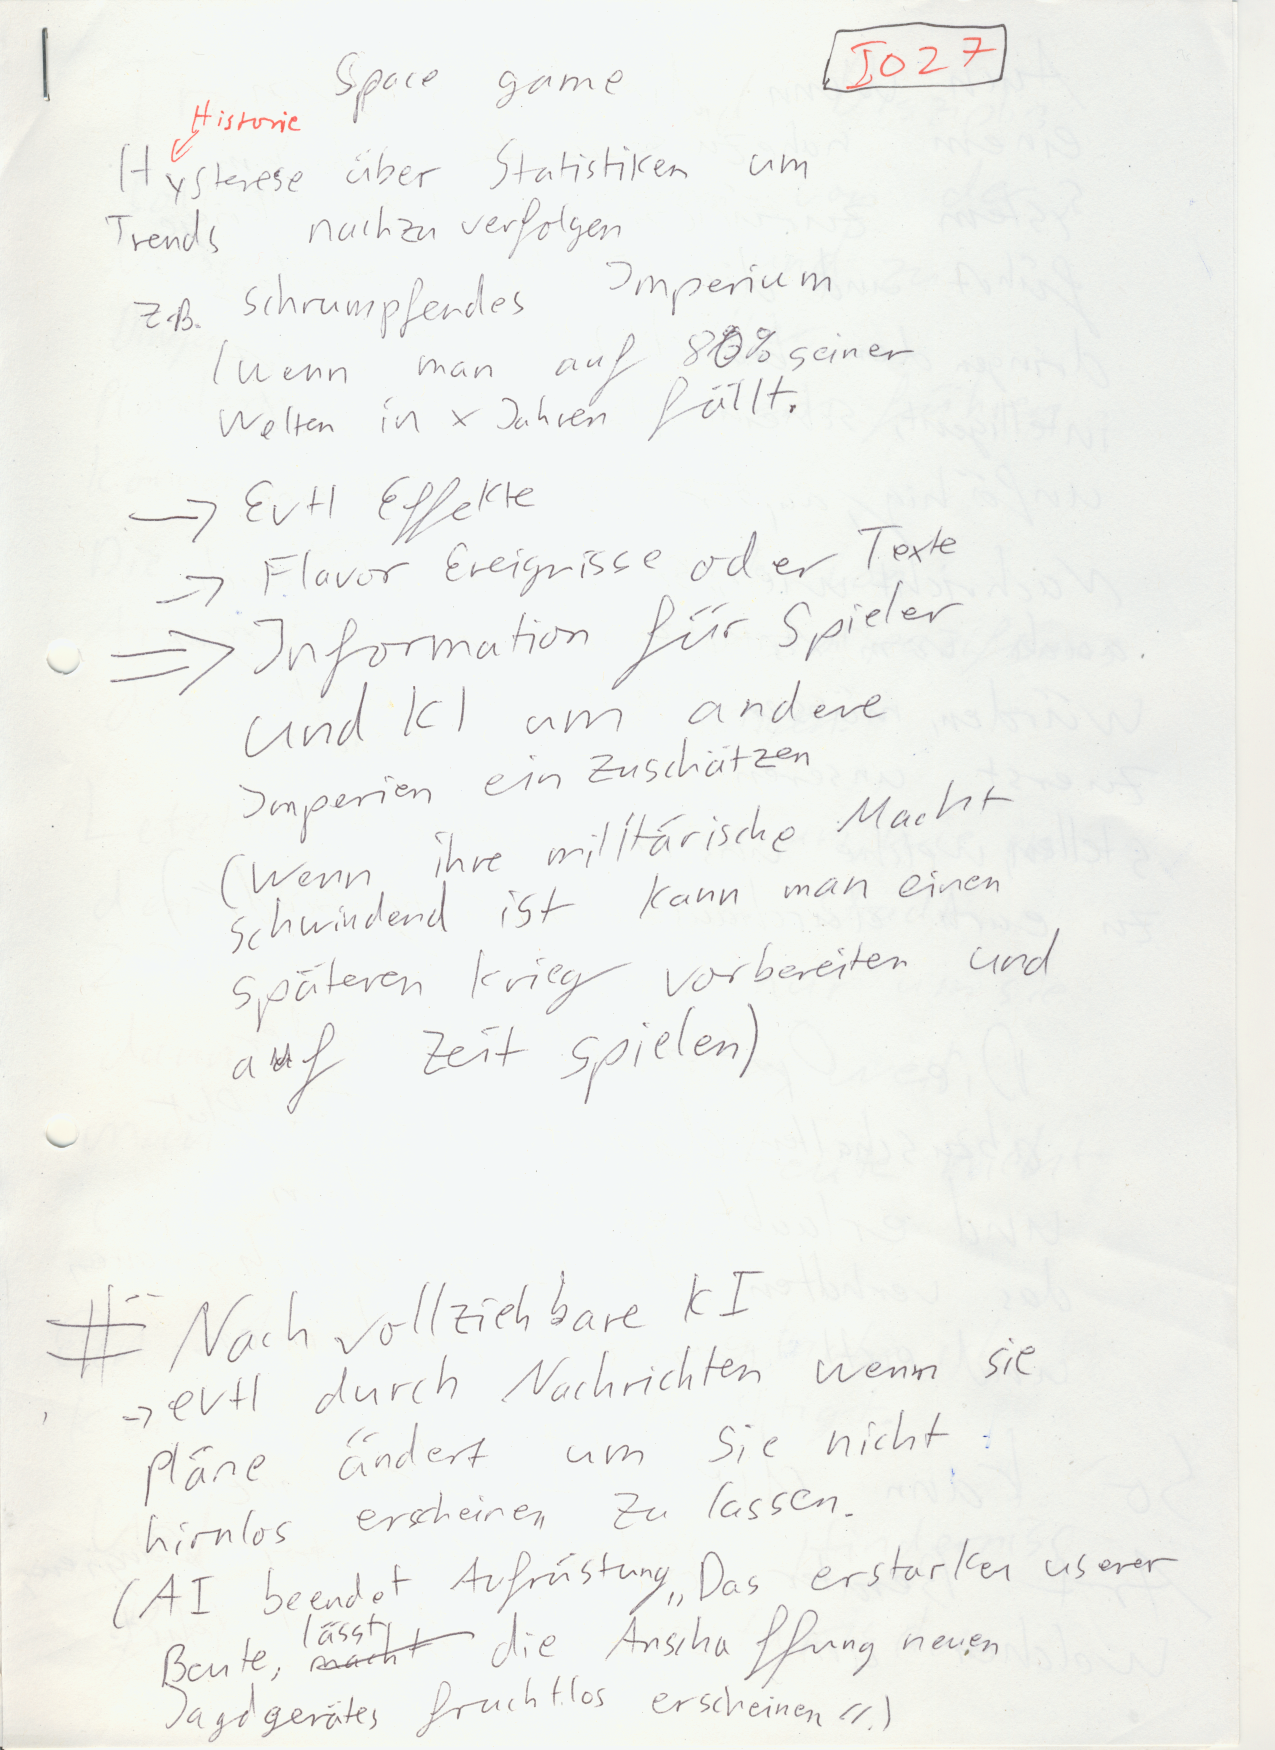 I027
Space game
Historie
Hysterese über Statistiken um
Trends nachzu verfolgen
z.B. schrumpfendes Imperium
(wenn man auf 80% seiner
Welten in x Jahren fällt.
→ Evtl Effekte
→ Flavor Ereignisse oder Texte
⇒ Information für Spieler
und KI um andere
Imperien ein zuschätzen
(Wenn ihre militärische Macht
schwindend ist kann man einen
späteren Krieg vorbereiten und
auf Zeit spielen)
# Nach vollziehbare KI
→ evtl durch Nachrichten wenn sie
pläne ändert um Sie nicht
hirnlos erscheinen zu lassen.
(AI beendet Aufrüstung „Das erstarken userer
lässt
Beute, macht die Anschaffung neuen
Jagdgerätes fruchtlos erscheinen“.)